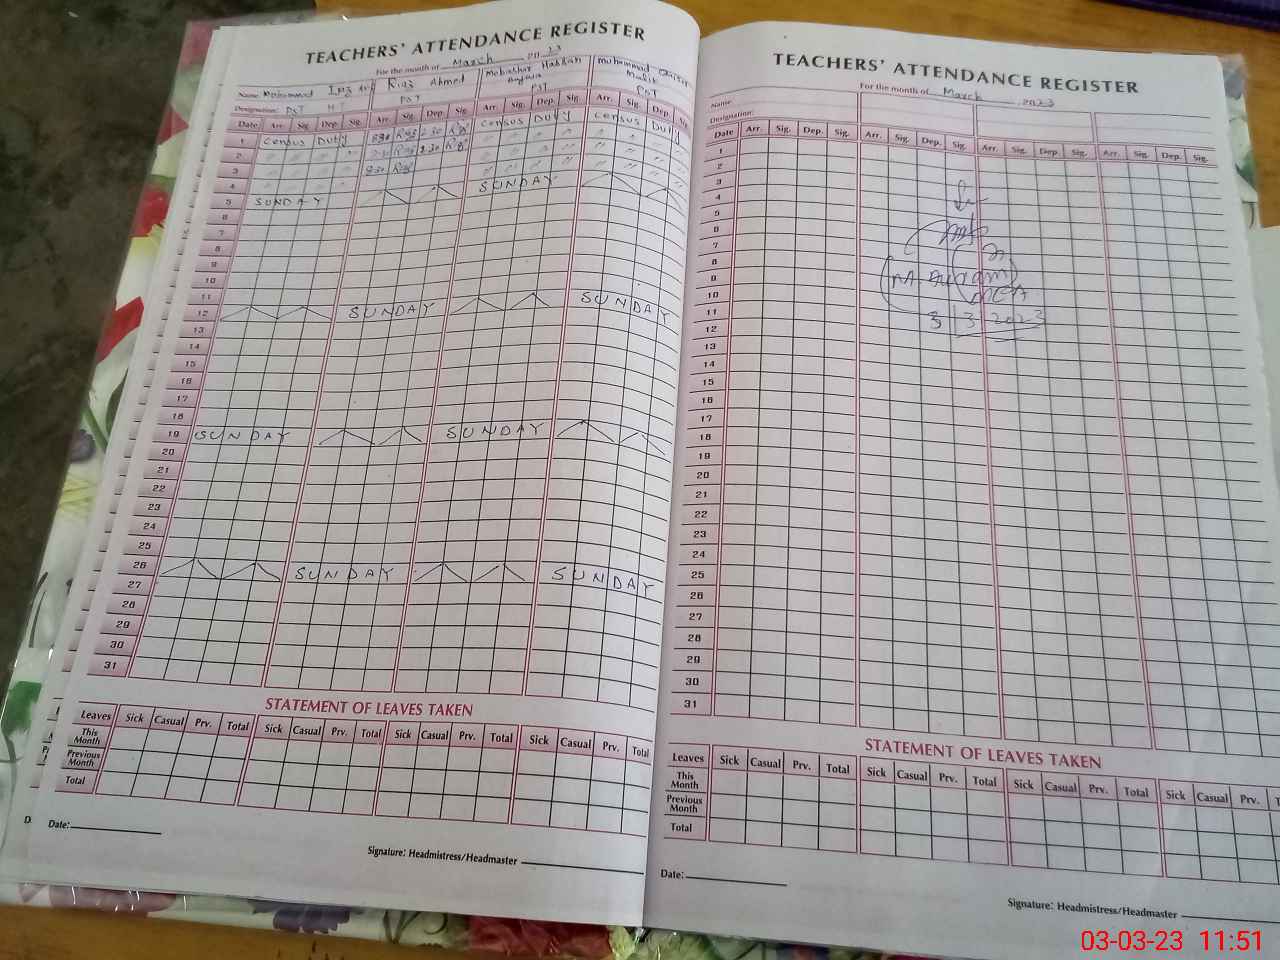 TEACHERS' ATTENDANCE REGISTER
For the month of March 2023
Name Mohammad Riaz Ahmed Mobashar Hassan Muhammad
Malik
Designation: PST HT PST PST PST
Date Arr. Sig. Dep. Sig. Arr. Sig. Dep. Sig. Arr. Sig. Dep. Sig. Arr. Sig. Dep.
1 Census Duty 8 30 2 30 Census Duty Census Duty
2 " " " " 2 30 " " " " " " "
3 " " " " 8 30 " " " " " " "
4 SUNDAY
5 SUNDAY
6
7
8
9
10
11
12 SUNDAY SUNDAY
13
14
15
16
17
18
19 SUNDAY SUNDAY
20
21
22
23
24
25
26 SUNDAY SUNDAY
27
28
29
30
31
STATEMENT OF LEAVES TAKEN
Leaves Sick Casual Prv. Total Sick Casual Prv. Total Sick Casual Prv. Total Sick Casual Prv. Total
This Month
Previous Month
Total
Date:
Signature: Headmistress/Headmaster
TEACHERS' ATTENDANCE REGISTER
For the month of March 2023
Name
Designation:
Date Arr. Sig. Dep. Sig. Arr. Sig. Dep. Sig. Arr. Sig. Dep. Sig. Arr. Sig. Dep. Sig.
1
2
3
4
5
6
7
8
9
10
11
12
13
14
15
16
17
18
19
20
21
22
23
24
25
26
27
28
29
30
31
MEA
3 3 2023
STATEMENT OF LEAVES TAKEN
Leaves Sick Casual Prv. Total Sick Casual Prv. Total Sick Casual Prv. Total Sick Casual Prv.
This Month
Previous Month
Total
Date:
Signature: Headmistress/Headmaster
03-03-23 11:51